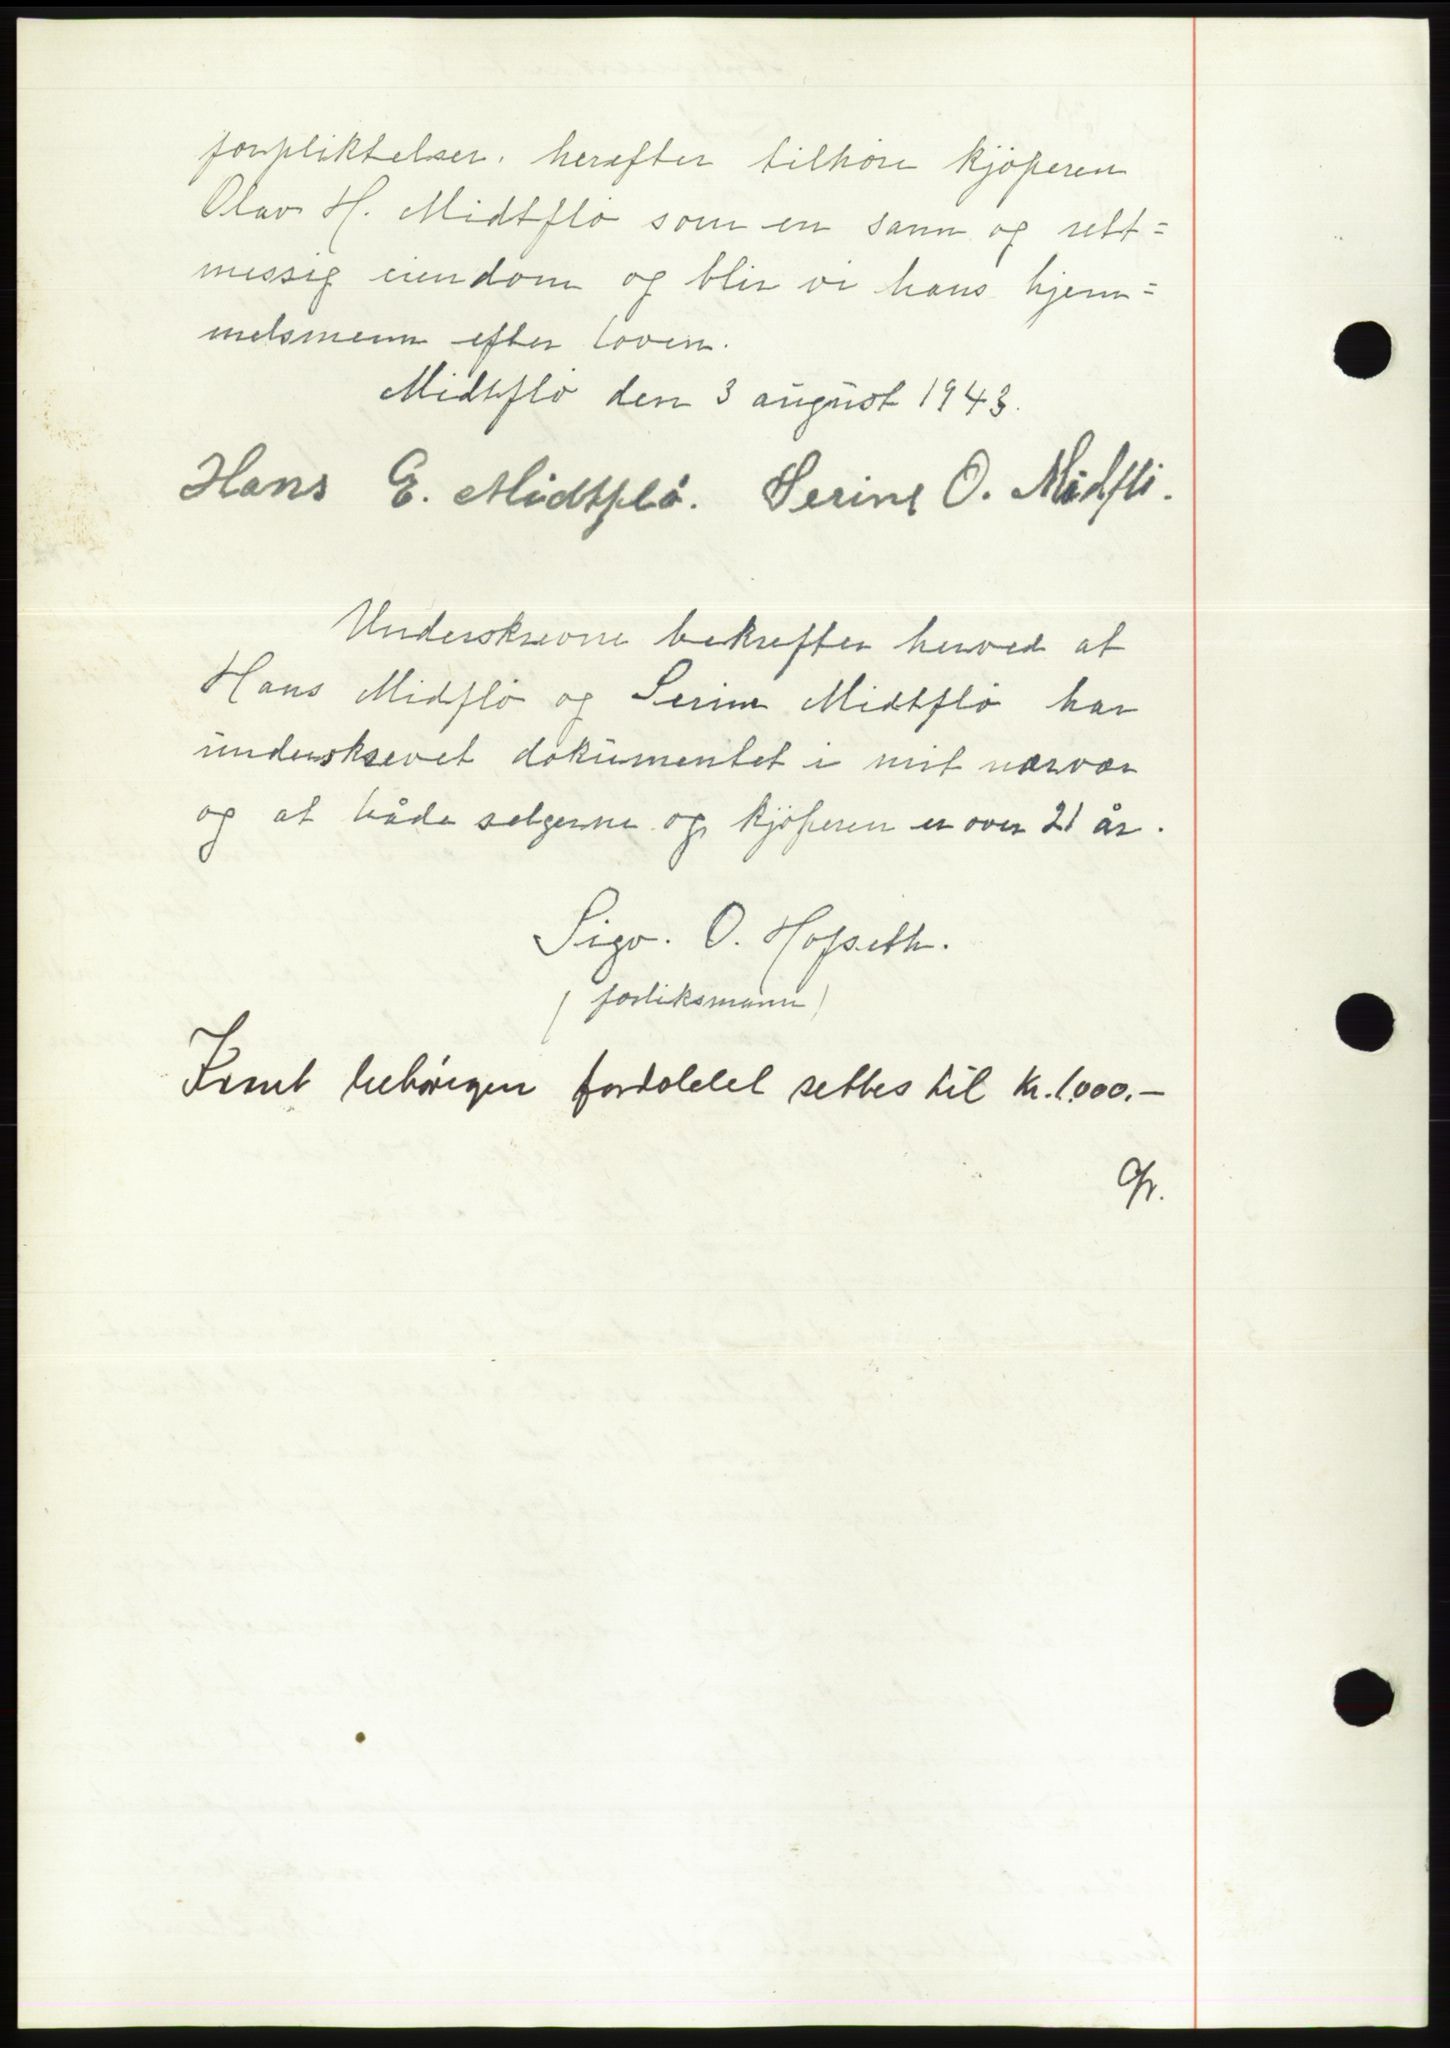 forpliktelser. herefter tilhöre kjöperen
Olav H. Midtflö som en sann og rett=
messig eiendom og blir vi hans hjem=
melsmenn efter loven.
Midtflö den 3 august 1943.
Hans E. Midtflö. Serine O. Midflö.
Underskrevne bekrefter herved at
Hans Midflö og Serine Midtflö har
underskrevet dokumentet i mit nærvær
og at både selgerne og kjöperen er over 21 år.
Sigv. O. Hofseth.
(forliksmann)
Kravt behørigen settes til kr. 1.000.-